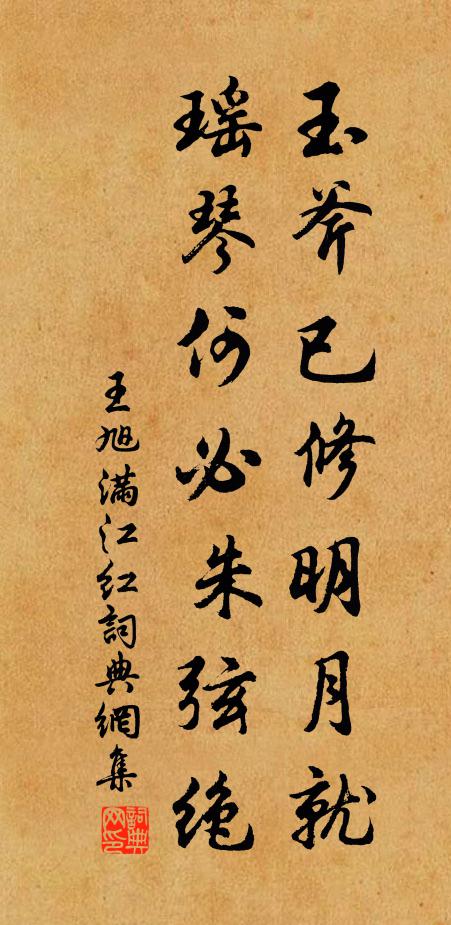 玉斧已修明月就
瑶琴何必朱弦绝
王旭满江红詞典網集
詞典网印